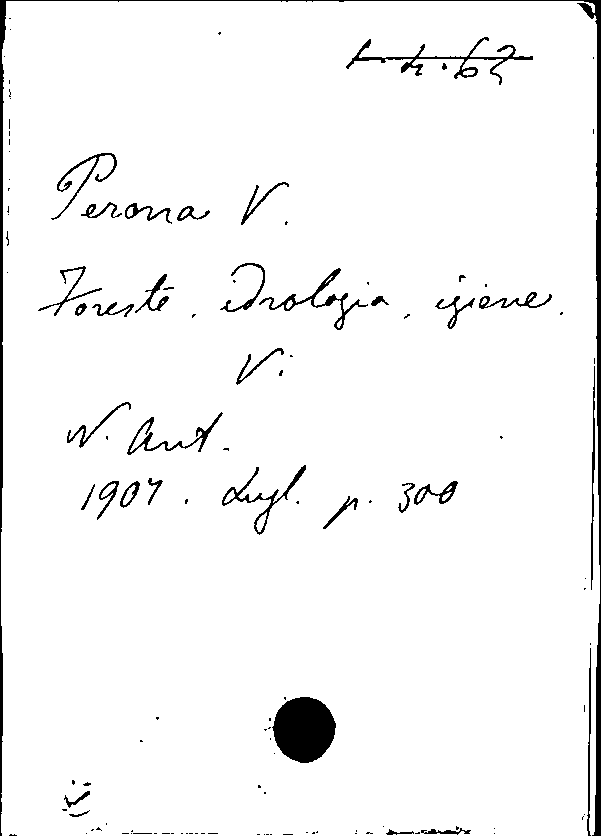 1.4.62
Perona V.
Foreste, idrologia, igiene.
V:
N. Ant.
1907. Lugl. p. 300